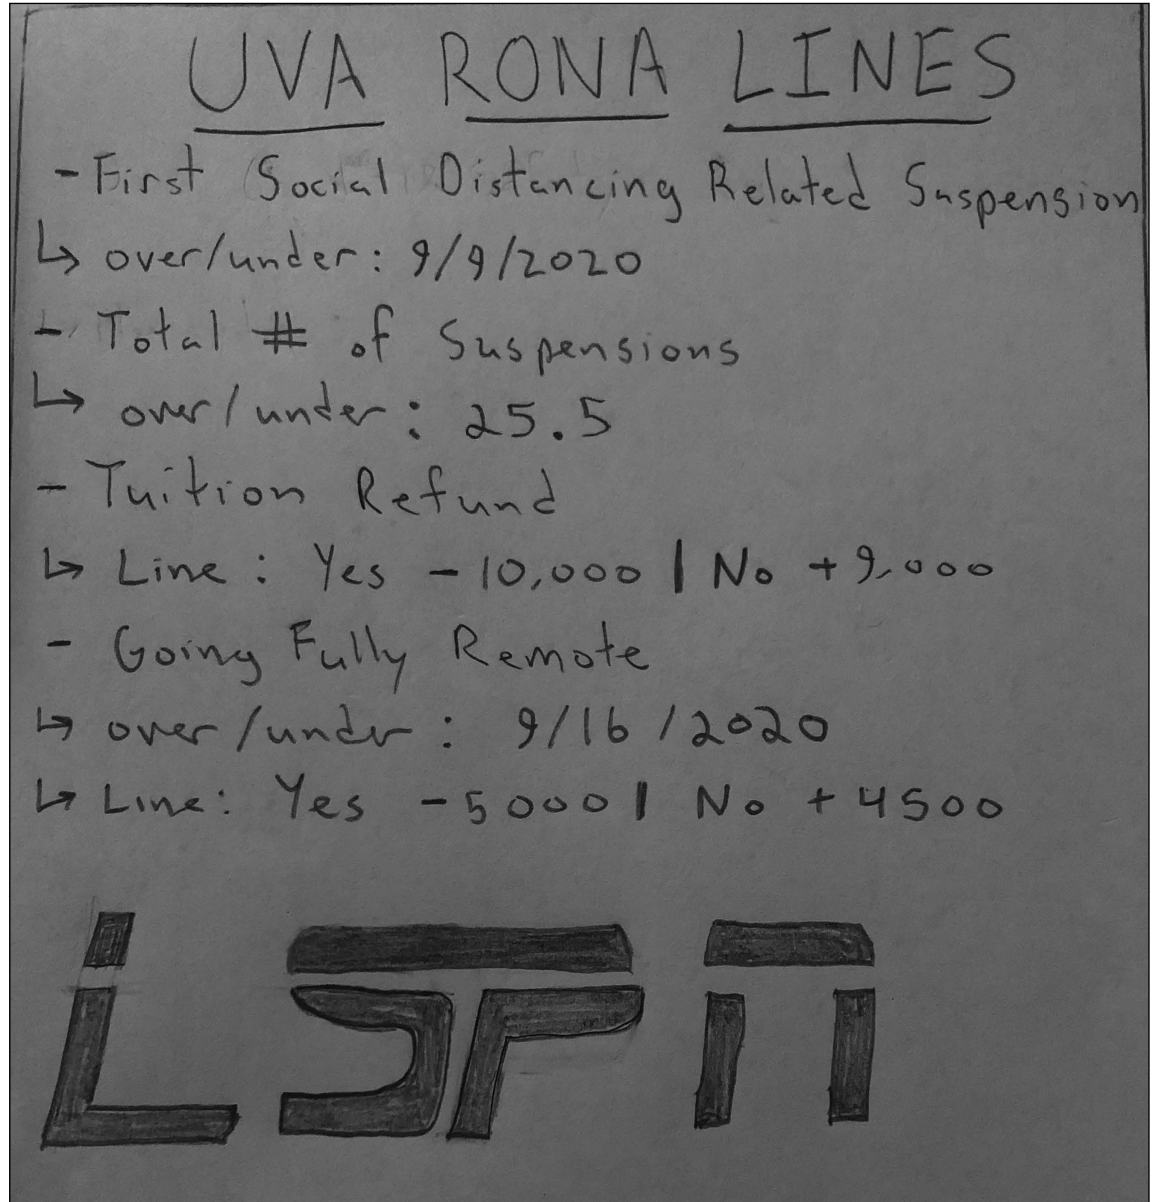 UVA RONA LINES
- First Social Distancing Related Suspension
↳ over/under: 9/9/2020
- Total # of Suspensions
↳ over/under: 25.5
- Tuition Refund
↳ Line: Yes -10,000 | No +9,000
- Going Fully Remote
↳ over/under: 9/16/2020
↳ Line: Yes -5000 | No +4500
LSPN